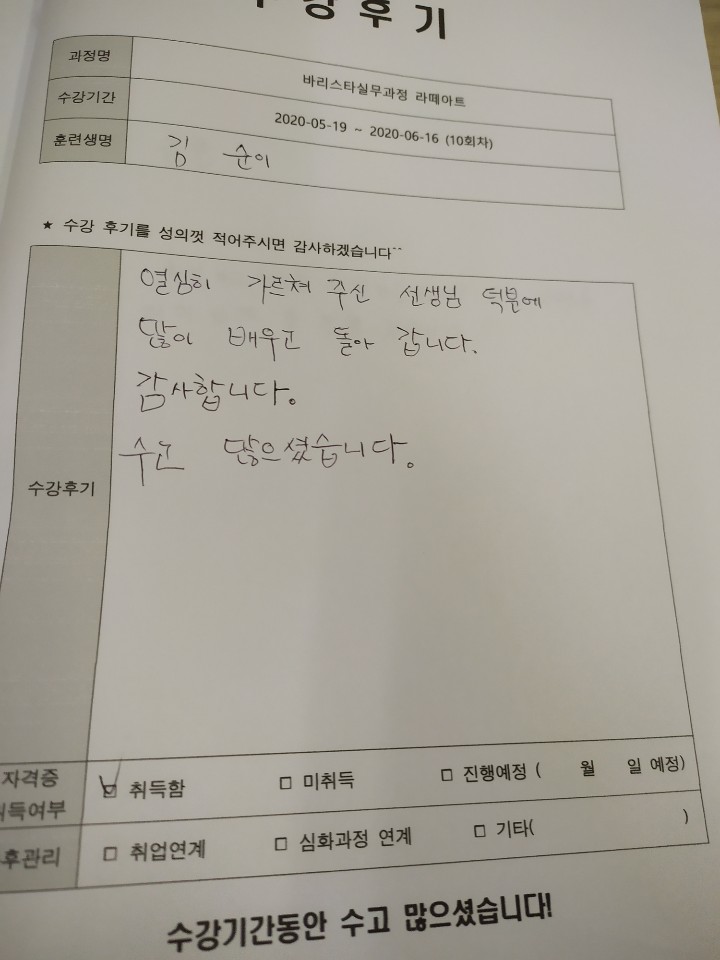 수강후기
과정명 바리스타실무과정 라떼아트
수강기간 2020-05-19 ~ 2020-06-16 (10회차)
훈련생명 김 순이
★ 수강 후기를 성의껏 적어주시면 감사하겠습니다^^
열심히 가르쳐 주신 선생님 덕분에
많이 배우고 돌아 갑니다.
감사합니다.
수고 많으셨습니다.
수강후기
자격증 ☑ 취득함 □ 미취득 □ 진행예정 ( 월 일 예정)
취득여부
후관리 □ 취업연계 □ 심화과정 연계 □ 기타( )
수강기간동안 수고 많으셨습니다!